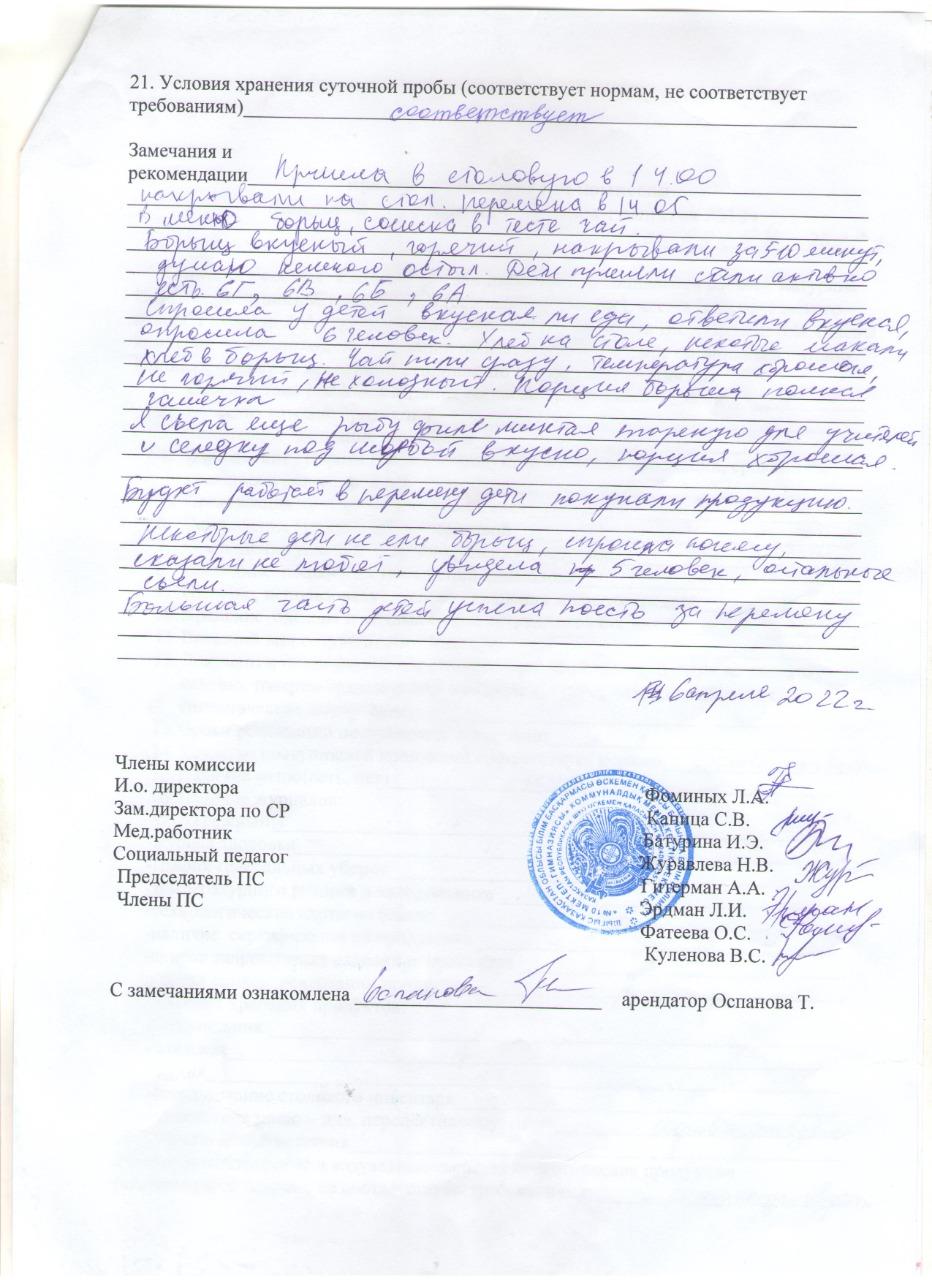 21. Условия хранения суточной пробы (соответствует нормам, не соответствует
требованиям) соответствует
Замечания и
рекомендации Пришла в столовую в 14.00
накрывали на стол. перемена в 14 05
В меню борщ, сосиска в тесте чай.
Борщ вкусный, горячий, накрывали за 5-10 минут,
думаю немного остыл. Дети пришли стали активно
есть. 6Г, 6В, 6Б, 6А
Спросила у детей вкусная ли еда, ответили вкусная,
опросила 6 человек. Хлеб на столе, некотые макали
хлеб в борщ. Чай пили сразу, температура хорошая,
не горячий, не холодный. Порция борща полная
тарелка
Я съела еще рыбу филе минтая жареную для учителей
и селедку под шубой вкусно, порция хорошая.
Буфет работает в перемену дети покупали продукцию.
Некоторые дети не ели борщ, спросила почему,
сказали не любят, увидела 5 человек, остальные
съели.
Большая часть детей успела поесть за перемену
6 апреля 2022 г.
Члены комиссии
И.о. директора Фоминых Л.А.
Зам.директора по СР Капица С.В.
Мед.работник Батурина И.Э.
Социальный педагог Журавлева Н.В.
Председатель ПС Гитерман А.А.
Члены ПС Эрдман Л.И.
Фатеева О.С.
Куленова В.С.
С замечаниями ознакомлена Оспанова арендатор Оспанова Т.